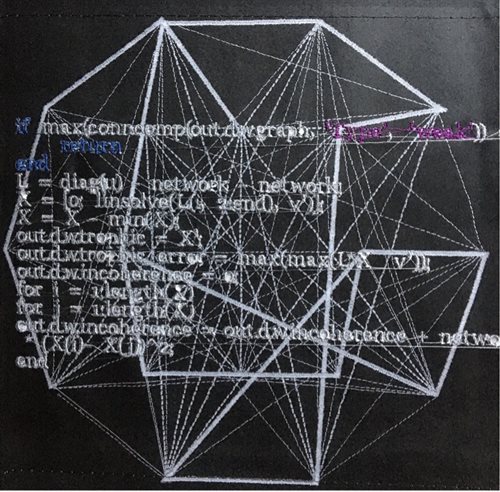 if max(conncomp(out.dw.graph, 'Type', 'weak'))
return
end
= diag(u) network network;
X = [0; linsolve(L( 2:end), v')];
X = X min(X);
out.dw.trophic = X;
out.dw.trophic_error = max(max(L*X v'));
out.dw.incoherence = 0;
for i = 1:length(X)
for j = 1:length(X)
out.dw.incoherence = out.dw.incoherence + netwo
(X(i) X(j) ^2;
end